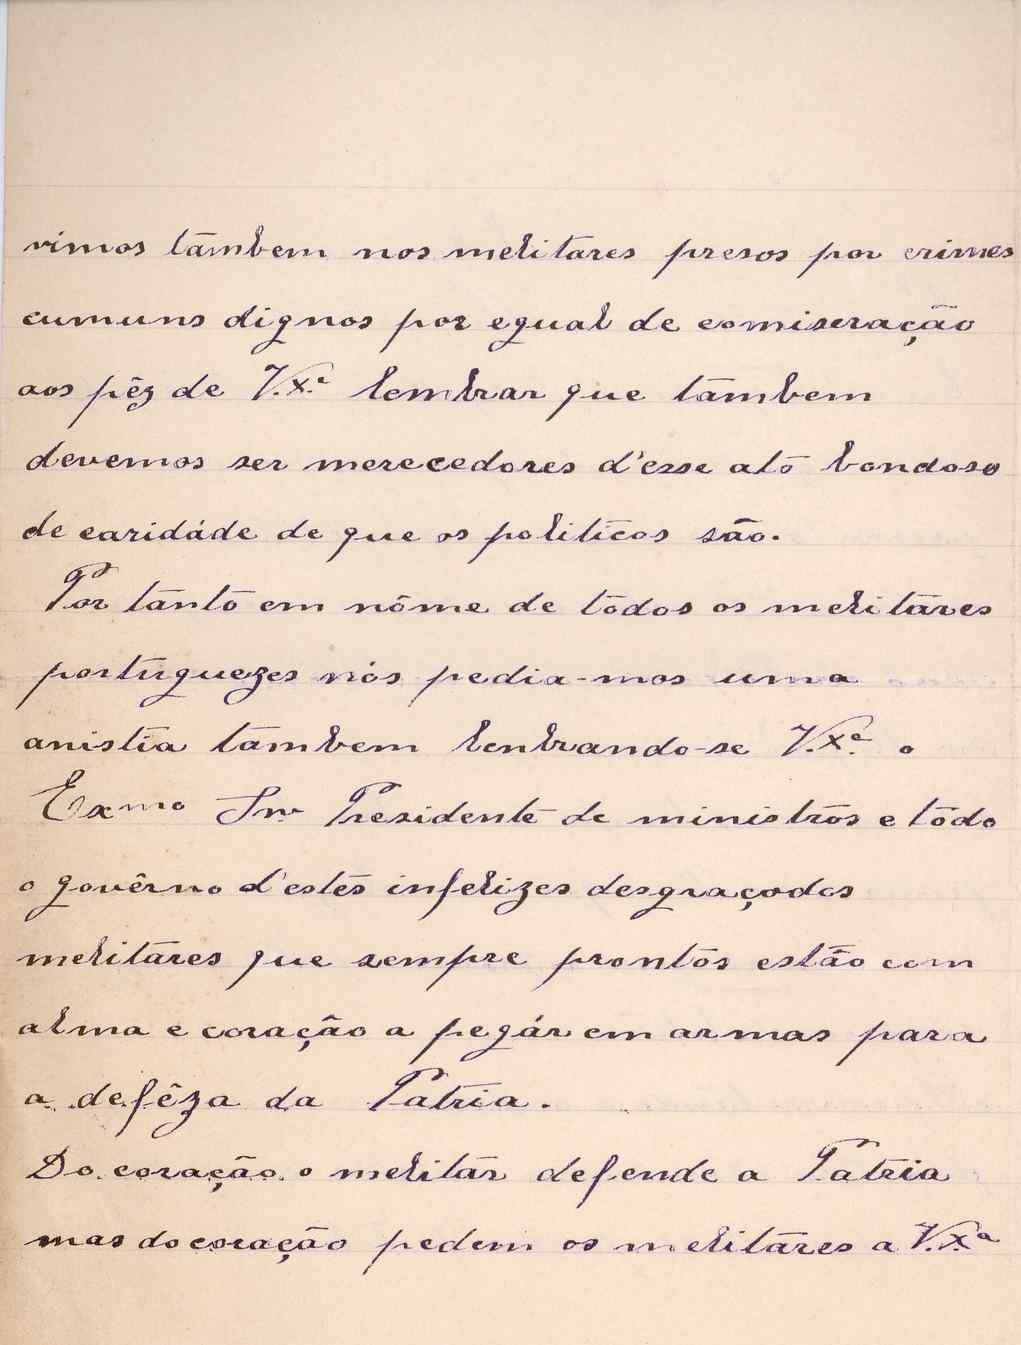 vimos tambem nos melitares presos por crimes
cumuns dignos por egual de comiseração
aos pêz de V.Xª. lembrar que tambem
devemos ser merecedores d'esse ato bondoso
de caridáde de que os politicos são.
Por tanto em nôme de todos os melitares
portuguezes nós pedia-mos uma
anistia tambem lenbrando-se V.Xª. o
Exmo Snr Presidente de ministros e tôdo
o govêrno d'estes infelizes desgraçados
melitares que sempre prontos estão com
alma e coração a pegár em armas para
a defêza da Patria.
Do coração o melitar defende a Patria
mas do coração pedem os melitares a V.Xª